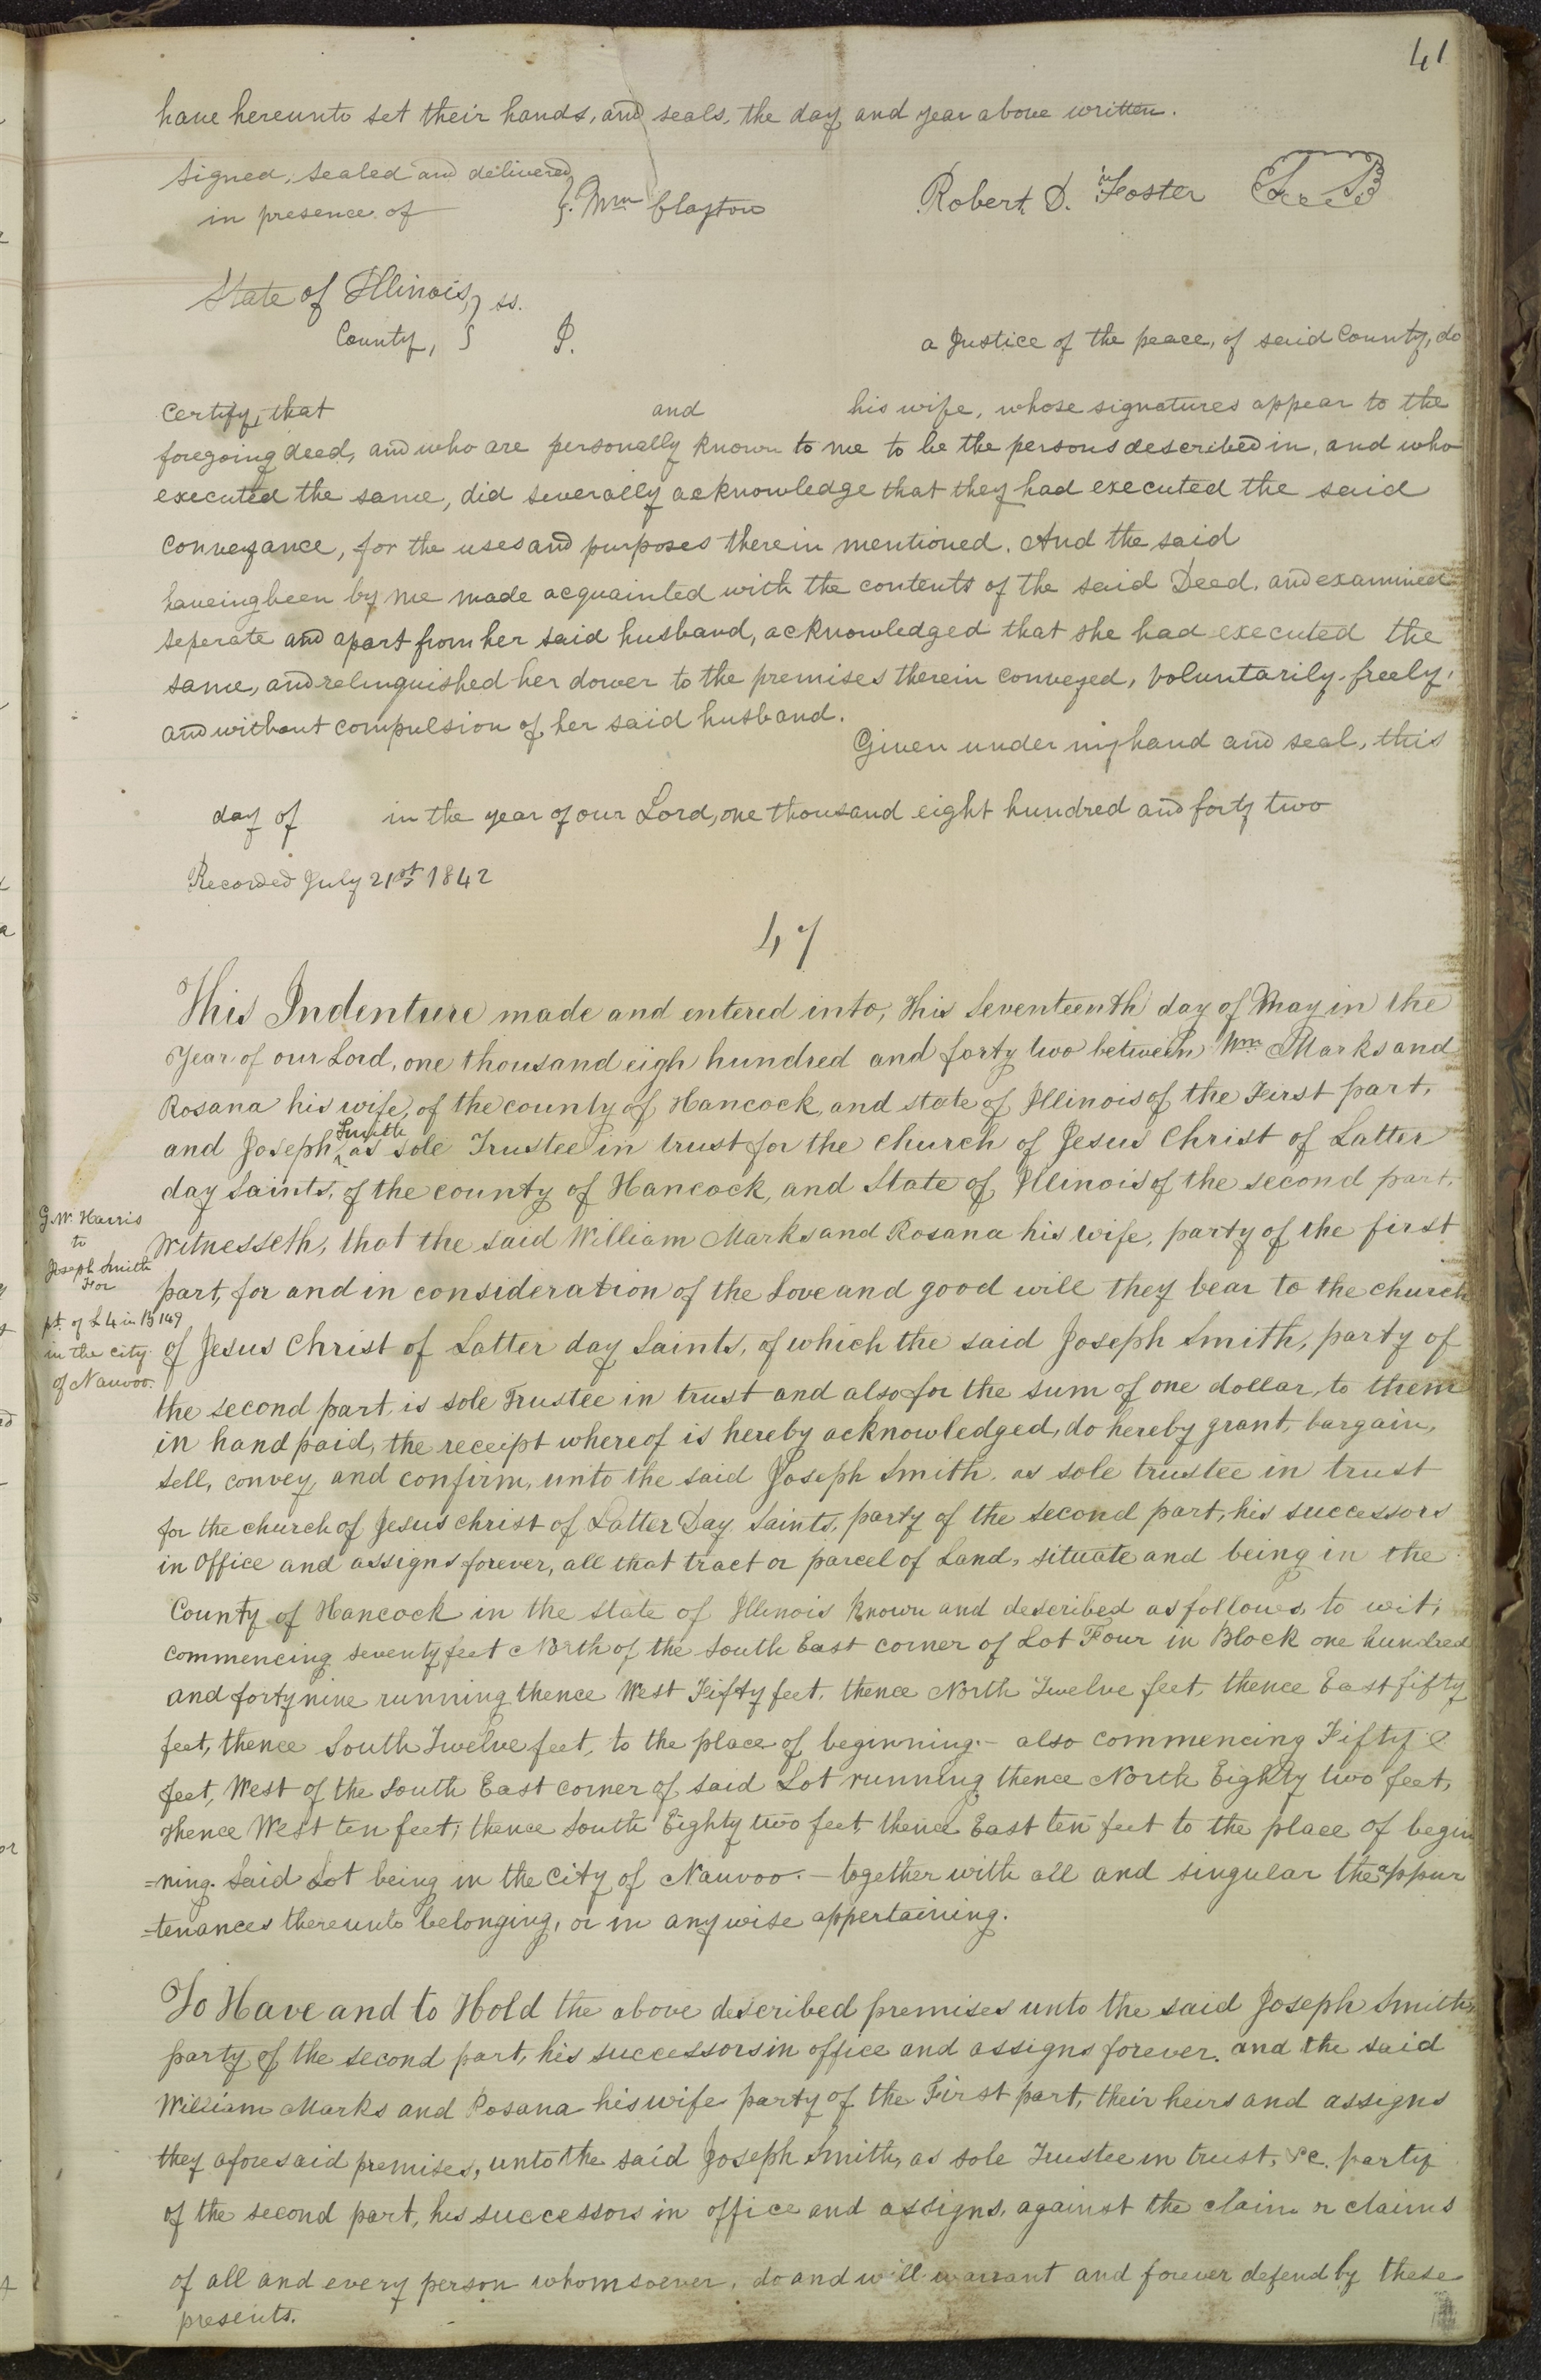 41
have hereunto set their hands, and seals, the day and year above written.
Signed, sealed and delivered
in presence of }. Wm Clayton Robert D. Foster
State of Illinois, } ss.
County, } I. a Justice of the peace, of said County, do
certify, that and his wife, whose signatures appear to the
foregoing deed, and who are personally known to me to be the persons described in, and who
executed the same, did severally acknowledge that they had executed the said
conveyance, for the uses and purposes therein mentioned. And the said
haveing been by me made acquainted with the contents of the said Deed, and examined
seperate and apart from her said husband, acknowledged that she had executed the
same, and relinquished her dower to the premises therein conveyed, voluntarily, freely,
and without compulsion of her said husband.
Given under my hand and seal, this
day of in the year of our Lord, one thousand eight hundred and forty two
Recorded July 21st 1842
47
This Indenture made and entered into, this Seventeenth day of May in the
Year of our Lord, one thousand eigh hundred and forty two between Wm Marks and
Rosana his wife, of the county of Hancock, and state of Illinois of the First part,
and Joseph Smith as sole Trustee in trust for the church of Jesus Christ of Latter
day Saints, of the county of Hancock, and State of Illinois of the second part,
Witnesseth, that the said William Marks and Rosana his wife, party of the first
part, for and in consideration of the Love and good will they bear to the church
of Jesus Christ of Latter day Saints, of which the said Joseph Smith, party of
the second part, is sole Trustee in trust and also for the sum of one dollar, to them
in hand paid, the receipt whereof is hereby acknowledged, do hereby grant, bargain,
sell, convey, and confirm, unto the said Joseph Smith, as sole trustee in trust
for the church of Jesus Christ of Latter Day Saints, party of the second part, his successors
in Office and assigns forever, all that tract or parcel of Land, situate and being in the
County of Hancock in the State of Illinois known and described as follows, to wit;
commencing seventy feet North of the South East corner of Lot Four in Block one hundred
and forty nine running thence West Fifty feet, thence North Twelve feet, thence East fifty
feet, thence South Twelve feet, to the place of beginning.- also commencing Fifty
feet, West of the South East corner of said Lot running thence North Eighty two feet,
thence West ten feet; thence South Eighty two feet, thence East ten feet to the place of begin
=ning. Said Lot being in the City of Nauvoo.- together with all and singular the appur
=tenances thereunto belonging, or in any wise appertaining.
To Have and to Hold the above described premises unto the said Joseph Smith,
party of the second part, his successors in office and assigns forever. and the said
William Marks and Rosana his wife party of the First part, their heirs and assigns
they aforesaid premises, unto the said Joseph Smith, as sole Trustee in trust, &c. party
of the second part, his successors in office and assigns, against the claim or claims
of all and every person whomsoever, do and will warrant and forever defend by these
presents.
G. W. Harris
to
Joseph Smith
For
pt. of L 4 in B 149
in the city
of Nauvoo.